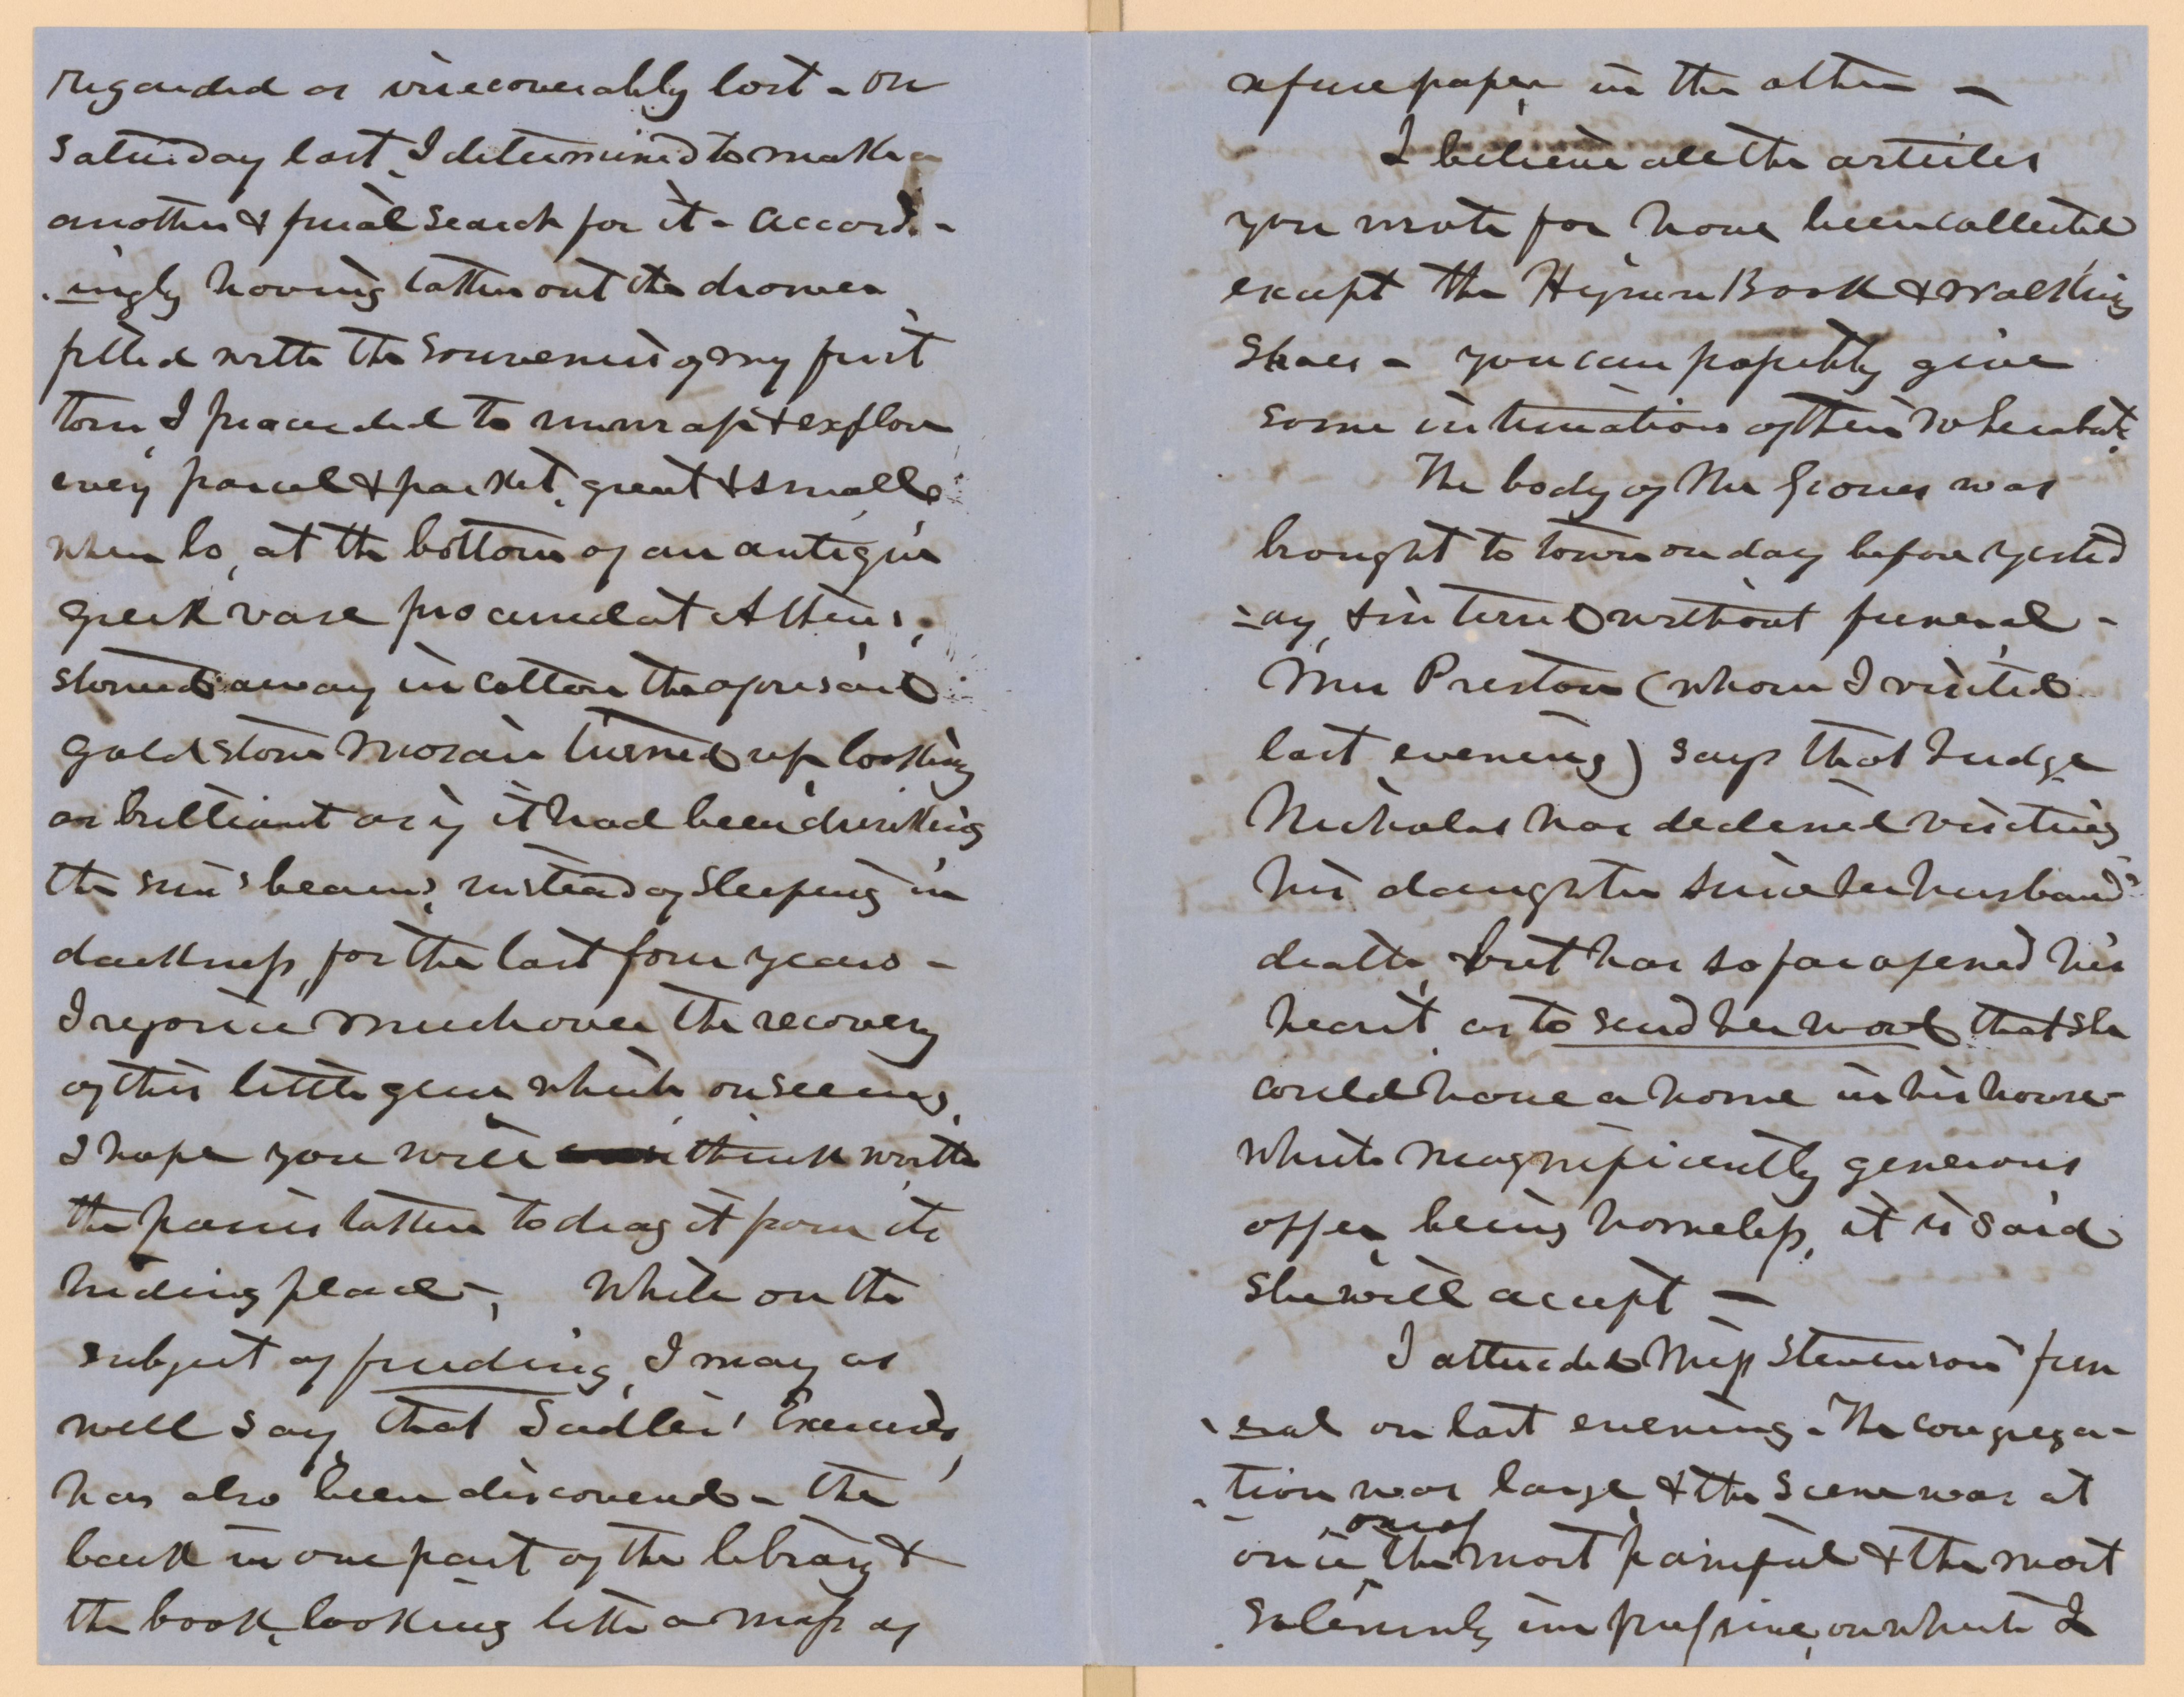 regarded as irrecoverably lost - On
Saturday last, I determined to make a
another & final search for it - Accord -
-ingly having taken out the drawer
filled with the souvenirs of my first
tour, I proceeded to unwrap & explore
every parcel & packet, great & small
when lo, at the bottom of an antique
greek vase procured at Athens,
stowed away in cotton the aforesaid
gold stone Mosaic turned up, looking
as brilliant as if it had been drinking
the sun's beams, instead of sleeping in
darkness, for the last four years -
I rejoice much over the recovery
of this little gem which, on seeing,
I hope you will think worth
the pains taken to drag it from its
hiding place -, While on the
subject of finding, I may as
well say, that Sadlier' Exercises,
has also been discovered - the
back in one part of the library &
the book, looking like a mass of
refuse paper, in the other -
I believe all the articles
you wrote for have been collected
except the Hymn Book & walking
Shoes - you can possibly give
some intimation of their whereabouts
The body of Mr Groves was
brought to town on day before yesterd
-ay, & interred without funeral -
Mrs Preston (whom I visited
last evening) says that Judge
Nicholas has declined visiting
his daughter since her husband's
death, but has so far opened his
heart as to send her word that she
could have a home in his house -
which magnificently generous
offer, being homeless, it is said
she will accept -
I attended Miss Stevenson' fun
-eral on last evening - The congrega -
-tion was large & the scene was at
once one of the most painful & the most
solemnly impressive, on which I